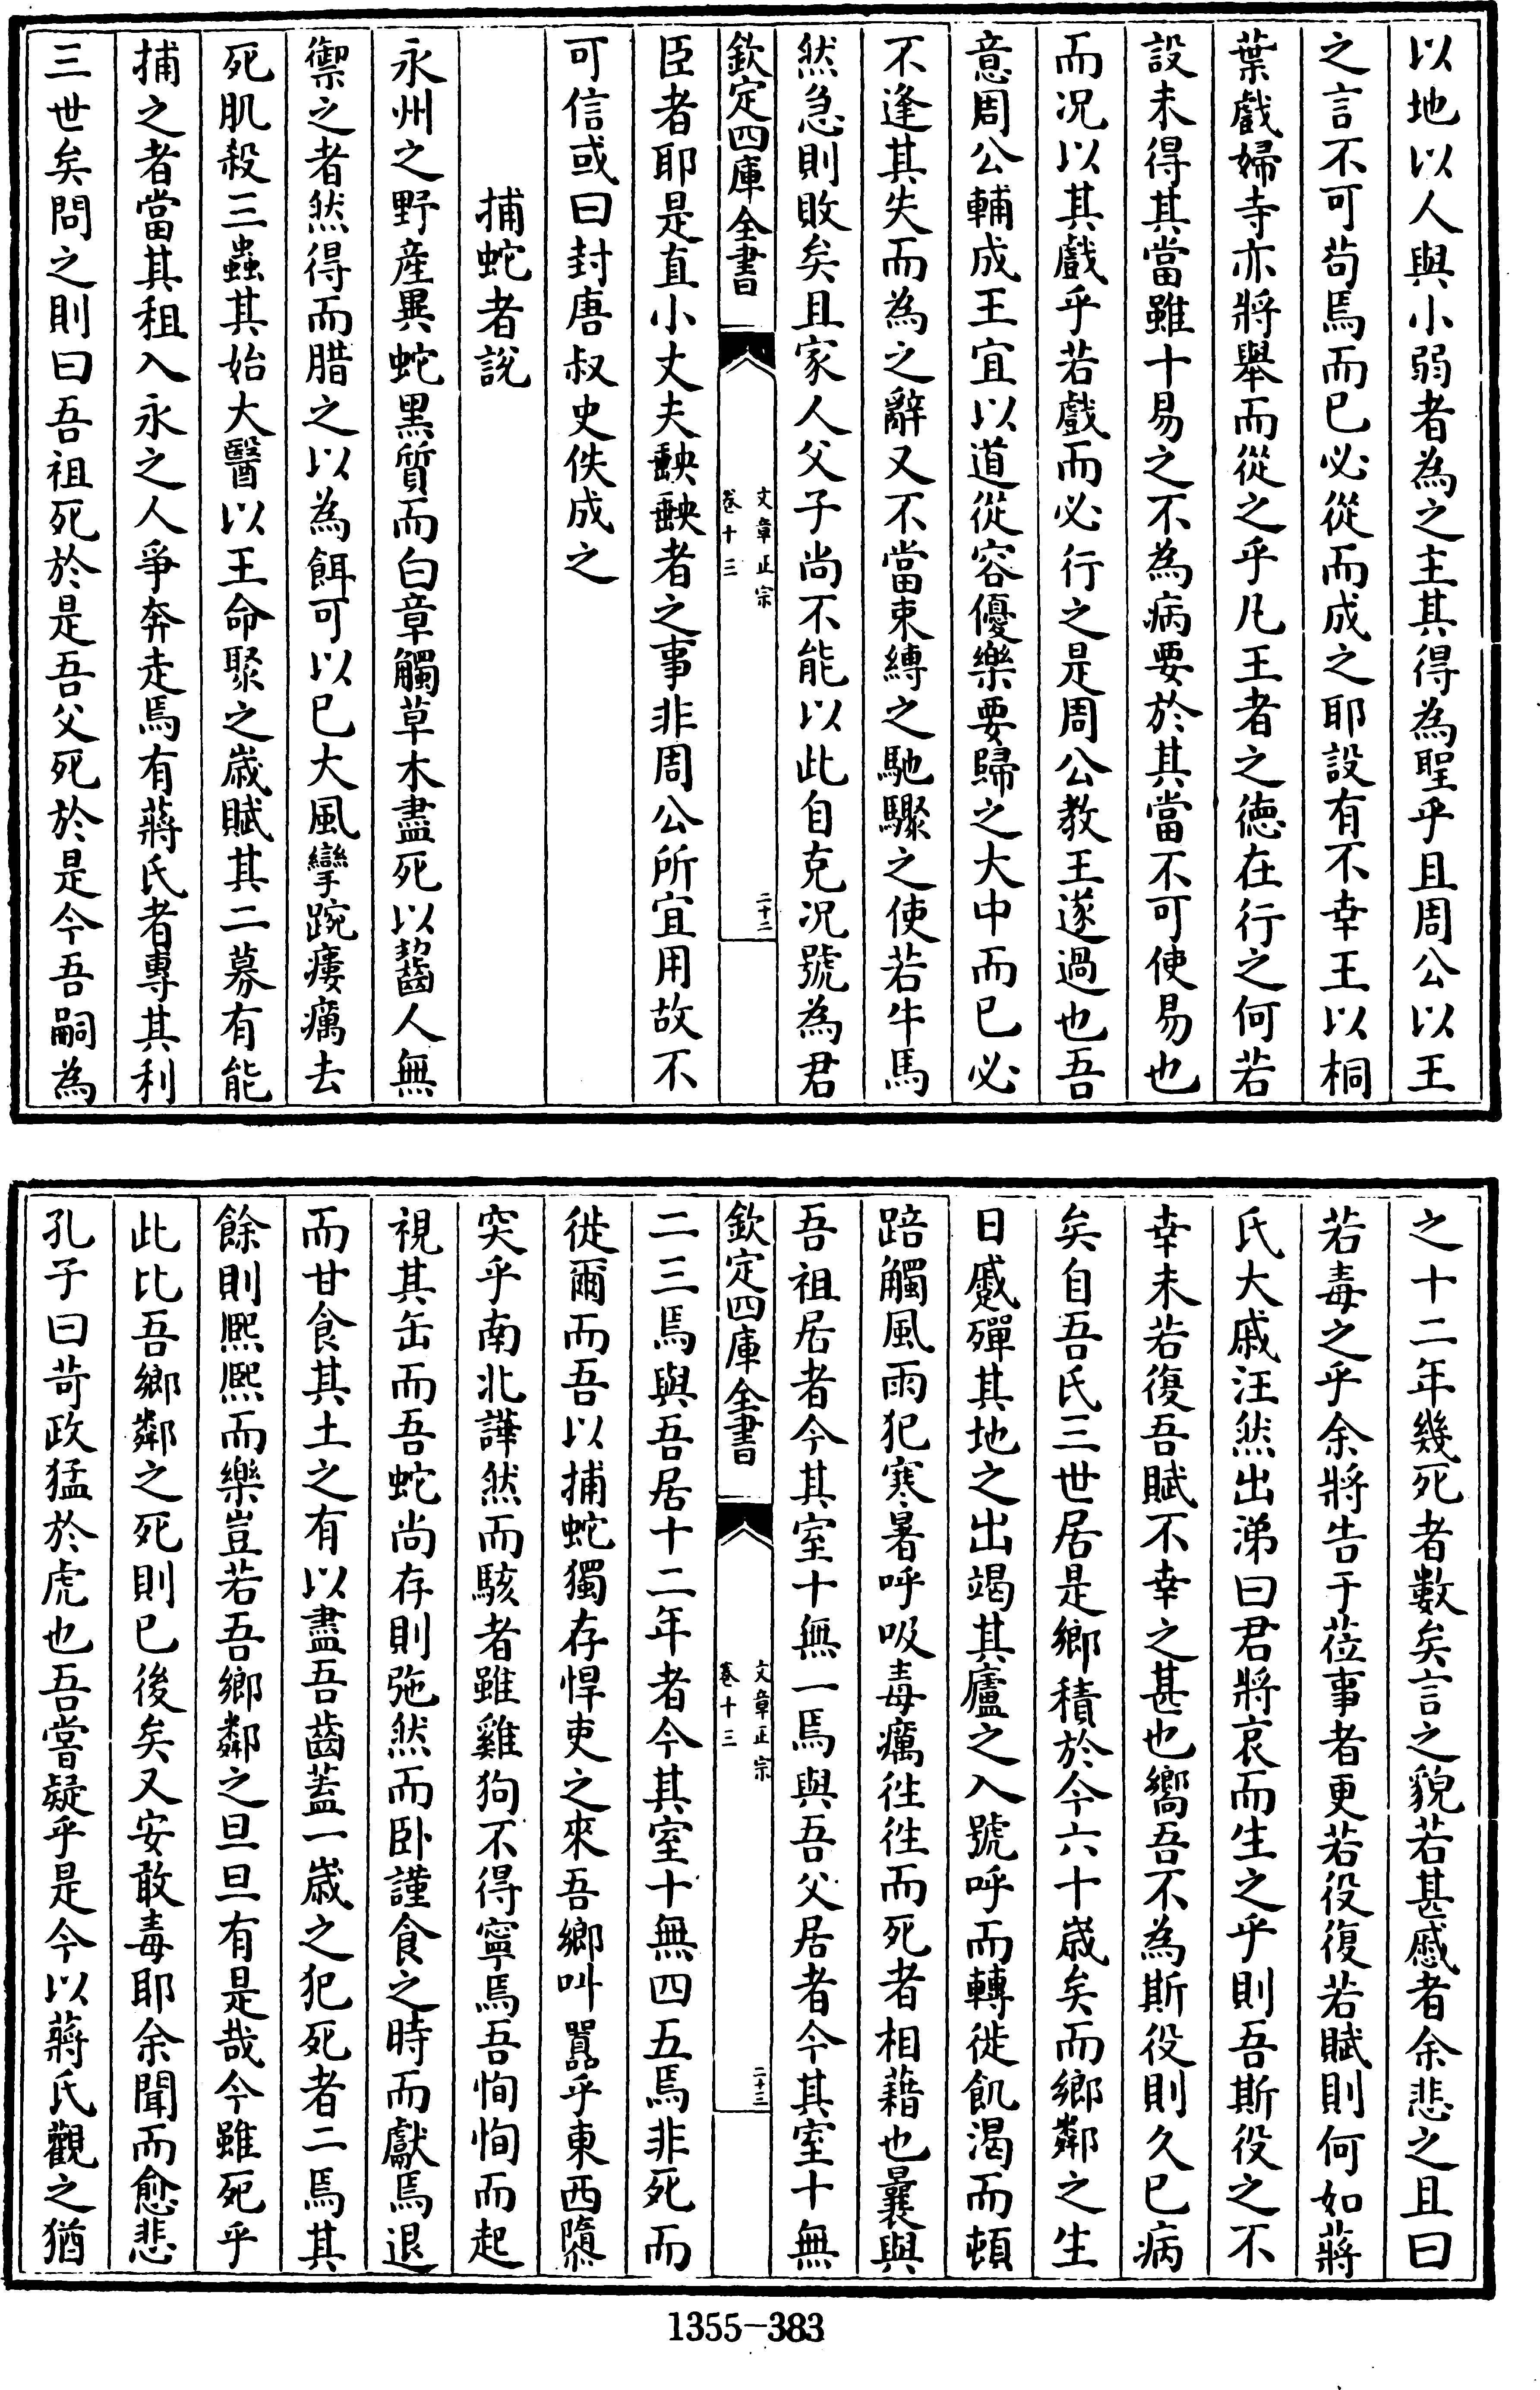 以地以人與小弱者為之主其得為聖乎且周公以王
之言不可苟焉而已必從而成之耶設有不幸王以桐
葉戲婦寺亦將舉而從之乎凡王者之徳在行之何若
設未得其當雖十易之不為病要於其當不可使易也
而况以其戲乎若戲而必行之是周公教王遂過也吾
意周公輔成王宜以道從容優樂要歸之大中而已必
不逢其失而為之辭又不當束縛之馳驟之使若牛馬
然急則敗矣且家人父子尚不能以此自克况號為君
欽定四庫全書
文章正宗
卷十三
二十二
臣者耶是直小丈夫𡙇𡙇者之事非周公所宜用故不
可信或曰封唐叔史佚成之
捕蛇者說
永州之野産異蛇黒質而白章觸草木盡死以齧人無
禦之者然得而腊之以為餌可以已大風攣踠瘻癘去
死肌殺三蟲其始大醫以王命聚之嵗賦其二募有能
捕之者當其租入永之人爭奔走焉有蔣氏者專其利
三世矣問之則曰吾祖死於是吾父死於是今吾嗣為
之十二年幾死者數矣言之貌若甚慼者余悲之且曰
若毒之乎余將告于莅事者更若役復若賦則何如蔣
氏大戚汪然出涕曰君將哀而生之乎則吾斯役之不
幸未若復吾賦不幸之甚也嚮吾不為斯役則久已病
矣自吾氏三世居是鄉積於今六十嵗矣而鄉鄰之生
日蹙殫其地之出竭其廬之入號呼而轉徙飢渴而頓
踣觸風雨犯寒暑呼吸毒癘往往而死者相藉也曩與
吾祖居者今其室十無一焉與吾父居者今其室十無
欽定四庫全書
文章正宗
卷十三
二十三
二三焉與吾居十二年者今其室十無四五焉非死而
徙爾而吾以捕蛇獨存悍吏之來吾鄉叫囂乎東西隳
突乎南北譁然而駭者雖雞狗不得寧焉吾恂恂而起
視其缶而吾蛇尚存則弛然而卧謹食之時而獻焉退
而甘食其土之有以盡吾齒蓋一嵗之犯死者二焉其
餘則熈熈而樂豈若吾鄉鄰之旦旦有是哉今雖死乎
此比吾鄉鄰之死則已後矣又安敢毒耶余聞而愈悲
孔子曰苛政猛於虎也吾嘗疑乎是今以蔣氏觀之猶
1355-383